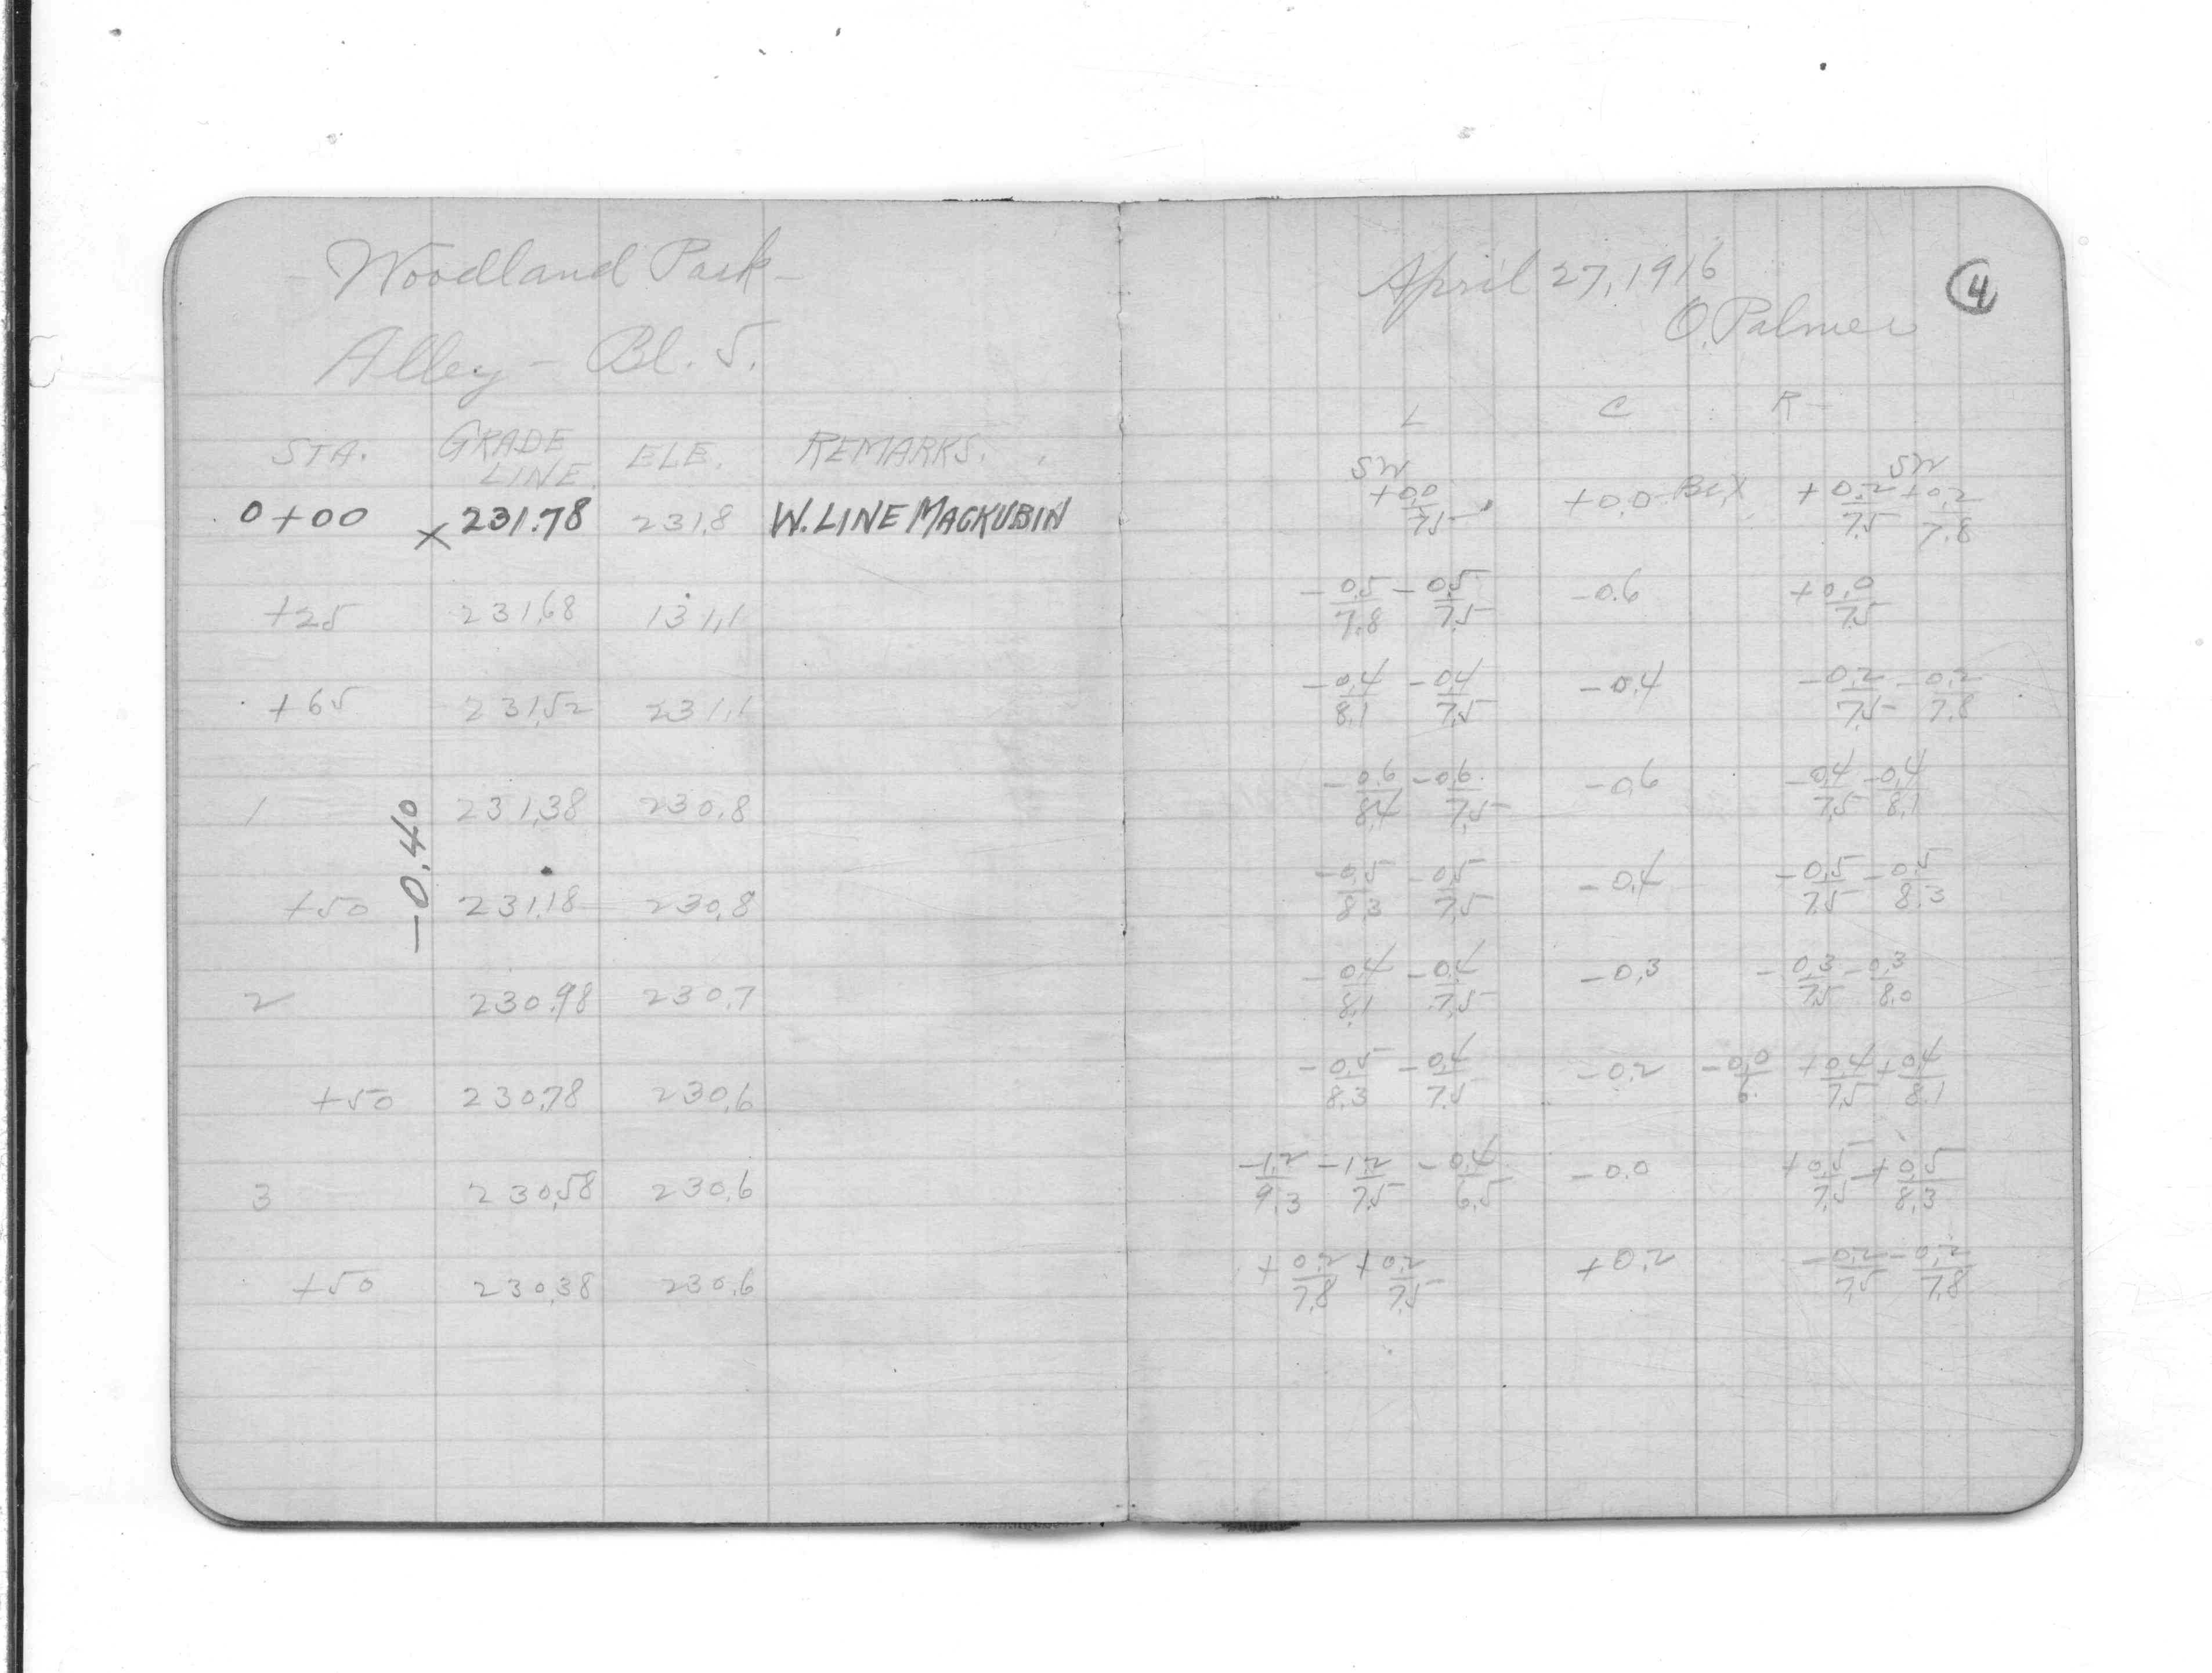 - Woodland Park -
Alley - Bl. 5.
STA. GRADE LINE. ELE. REMARKS.
0+00 x 231.78 231.8 W. LINE MACKUBIN
+25 231.68 131.1
+65 231.52 231.1
1 231.38 230.8
+50 231.18 230.8
2 230.98 230.7
+50 230.78 230.6
3 230.58 230.6
+50 230.38 230.6
-0.40
April 27, 1916
4
O. Palmer
L C R
SW +0.0/7.5 +0.0 +0.2/7.5 SW +0.2/7.8
-0.5/7.8 -0.5/7.5 -0.6 +0.0/7.5
-0.4/8.1 -0.4/7.5 -0.4 -0.2/7.5 -0.2/7.8
-0.6/8.4 -0.6/7.5 -0.6 -0.4/7.5 -0.4/8.1
-0.5/8.3 -0.5/7.5 -0.4 -0.5/7.5 -0.5/8.3
-0.4/8.1 -0.4/7.5 -0.3 -0.3/7.5 -0.3/8.0
-0.5/8.3 -0.4/7.5 -0.2 -0.0/6. +0.4/7.5 +0.4/8.1
-1.2/9.3 -1.2/7.5 -0.4/6.5 -0.0 +0.5/7.5 +0.5/8.3
+0.2/7.8 +0.2/7.5 +0.2 -0.2/7.5 -0.2/7.8